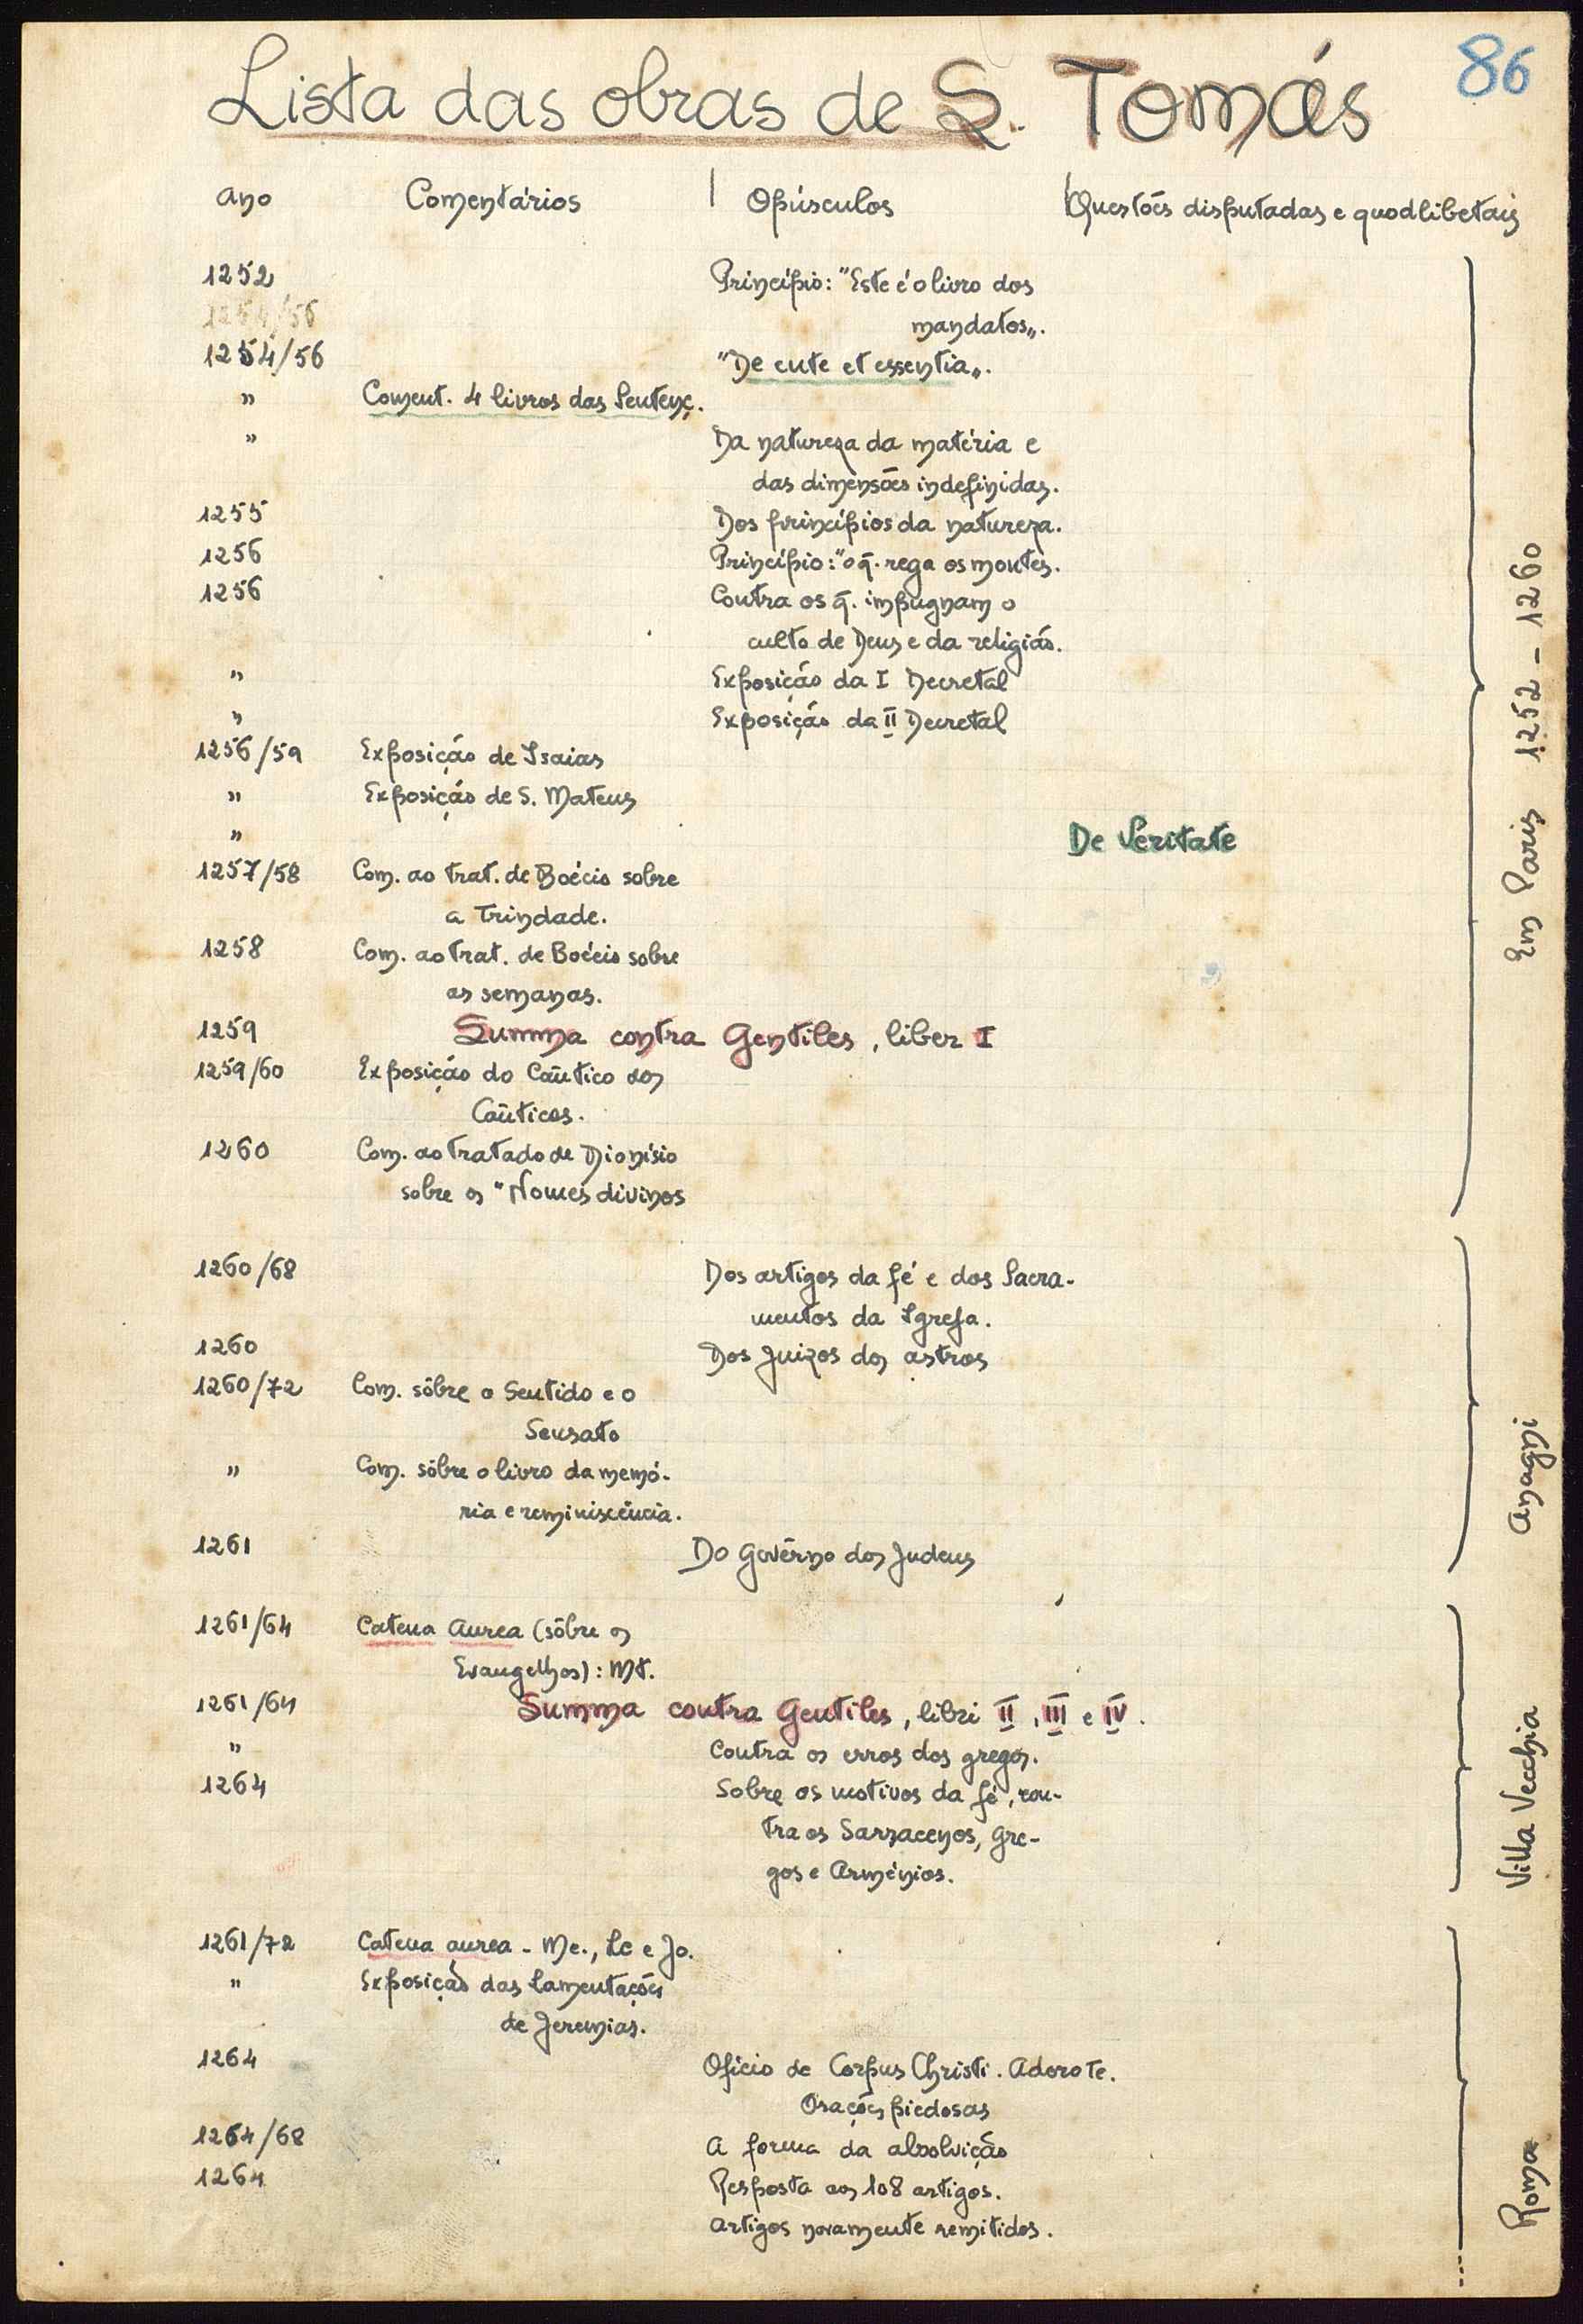 86
Lista das obras de S. Tomás
Ano Comentários | Opúsculos | Questões disputadas e quodlibetais
1252 Princípio: "Este é o livro dos
1254/56 mandatos„.
1254/56 "De ente et essentia„.
" Coment. 4 livros das Sentenç.
" Da natureza da matéria e
das dimensões indefinidas.
1255 Dos princípios da natureza.
1256 Princípio: "o q̃. rega os montes.
1256 Contra os q̃. impugnam o
culto de Deus e da religião.
" Exposição da I Decretal
" Exposição da II Decretal
1256/59 Exposição de Isaias
" Exposição de S. Mateus
" De Veritate
1257/58 Com. ao trat. de Boécio sobre
a Trindade.
1258 Com. ao trat. de Boécio sobre
as semanas.
1259 Summa contra Gentiles, liber I
1259/60 Exposição do Cântico dos
Cânticos.
1260 Com. ao tratado de Dionísio
sobre os "Nomes divinos
Em Paris 1252 - 1260
1260/68 Dos artigos da fé e dos Sacra-
mentos da Igreja.
1260 Dos Juizos dos astros
1260/72 Com. sôbre o Sentido e o
Sensato
" Com. sôbre o livro da memó-
ria e reminiscência.
1261 Do Govêrno dos Judeus
Anagni
1261/64 Catena Aurea (sôbre os
Evangelhos): Mt.
1261/64 Summa contra Gentiles, libri II, III e IV.
" Contra os erros dos gregos.
1264 Sobre os motivos da fé, con-
tra os Sarracenos, Gre-
gos e Arménios.
Villa Vecchia
1261/72 Catena aurea - Mc., Lc e Jo.
" Exposição das Lamentações
de Jeremias.
1264 Ofício de Corpus Christi. Adoro Te.
Orações piedosas
1264/68 A forma da absolvição
1264 Resposta aos 108 artigos.
Artigos novamente remitidos.
Roma